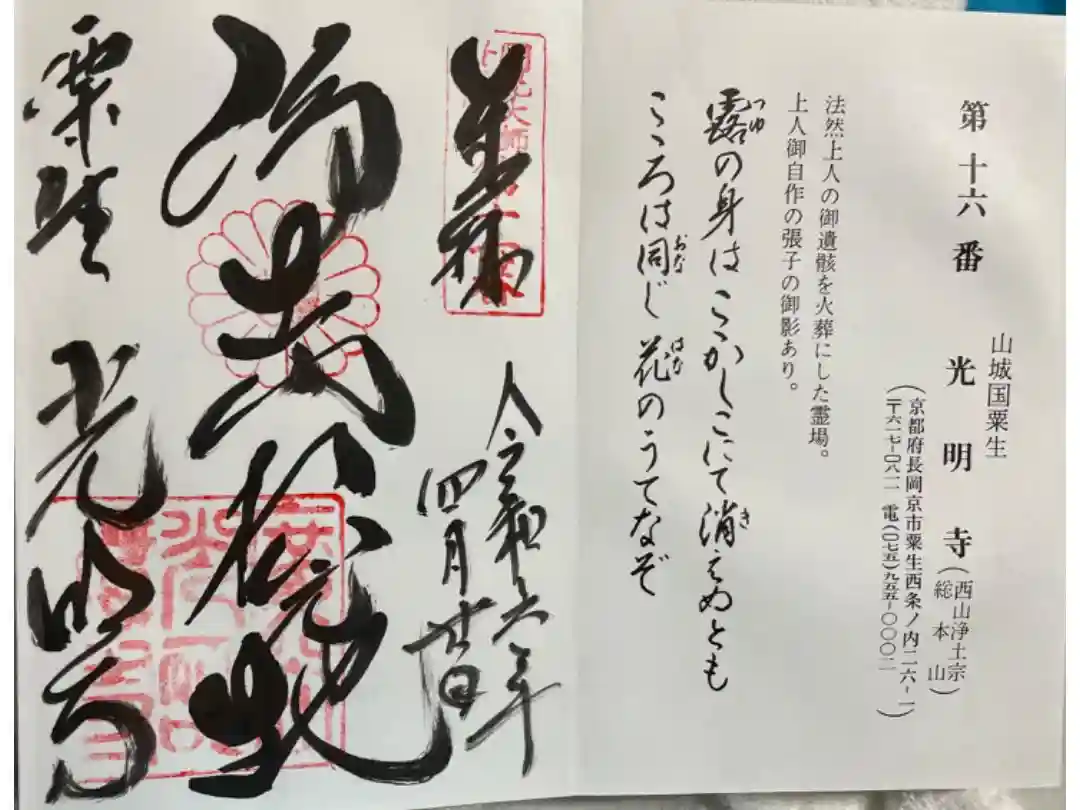 第十六番 山城国粟生 光明寺(西山浄土宗 総本山)
(京都府長岡京市粟生西条ノ内二六-一
〒六一七-〇八一一 電(〇七五)九五五-〇〇〇二)
法然上人の御遺骸を火葬にした霊場。
上人御自作の張子の御影あり。
露の身はこゝかしこにて消えぬとも
こゝろは同じ花のうてなぞ
奉拝
令和六年
四月
浄土門根元地
粟生 光明寺